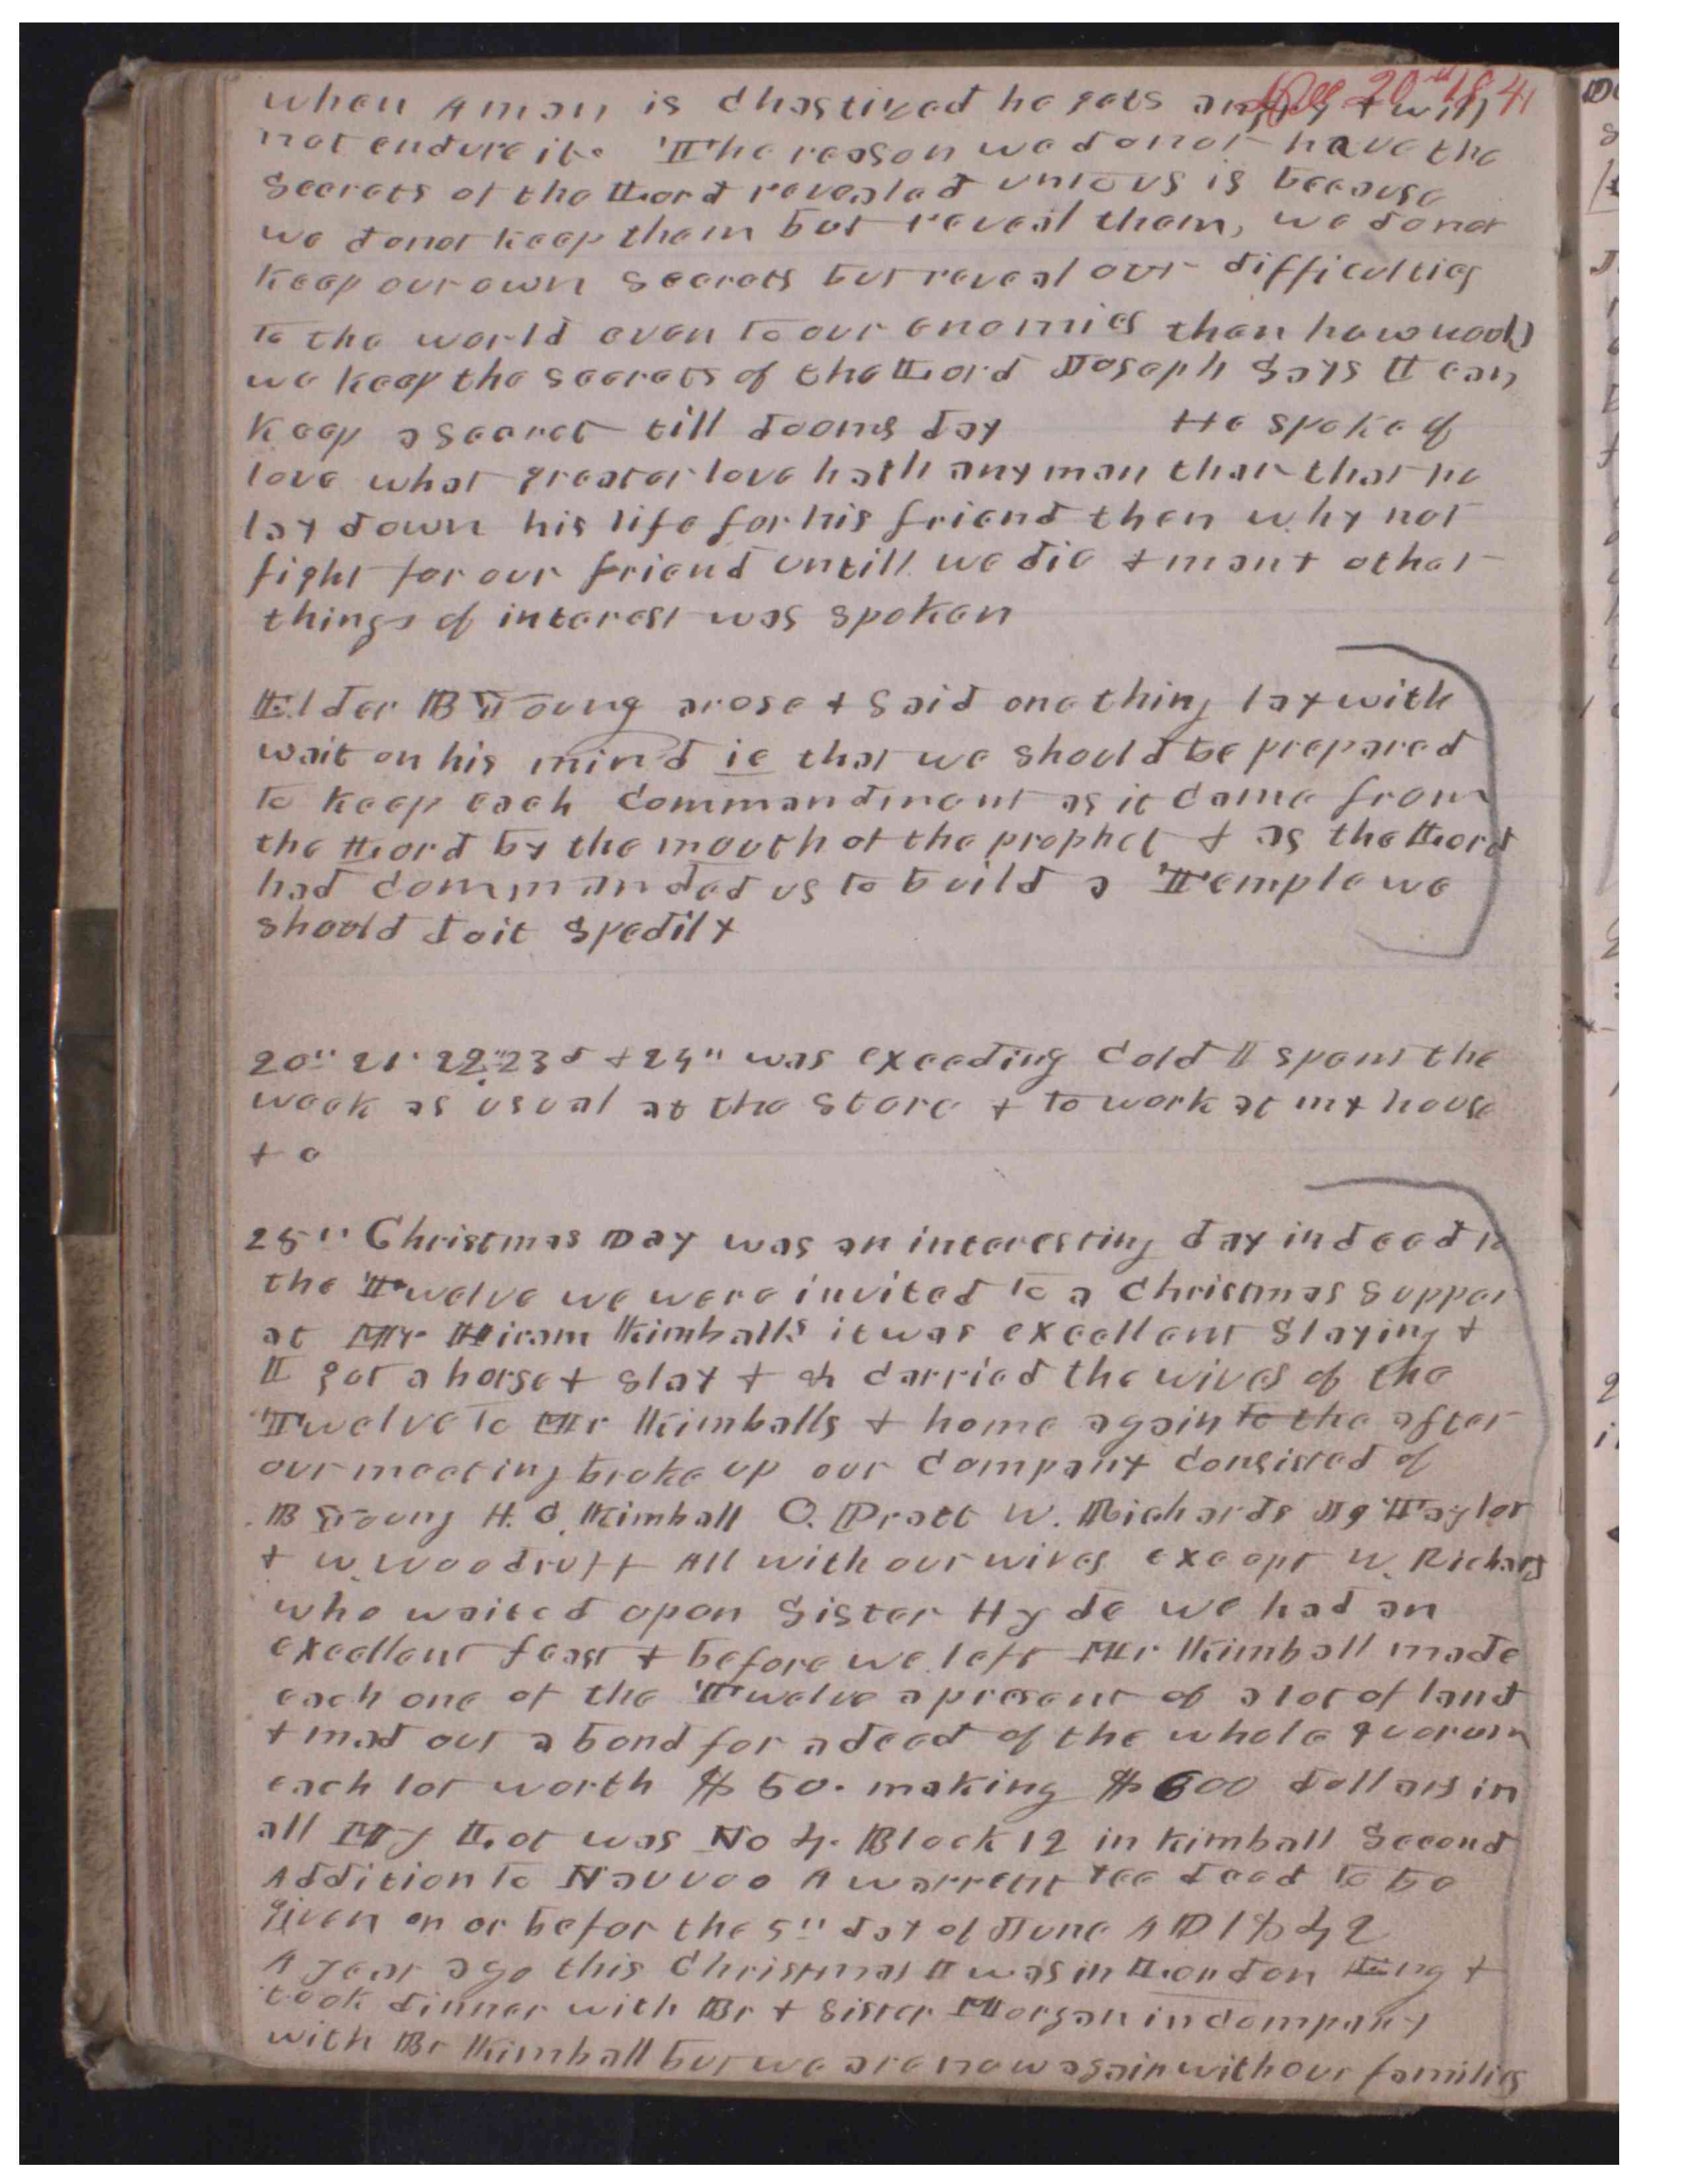 Dec 20th 1841
when A man is chastized he gets angry & will
not endure it. The reason we do not have the
Secrets of the Lord revealed unto us is because
we do not keep them but reveal them, we do not
keep our own secrets but reveal our difficulties
to the world even to our enemies then how would
we keep the secrets of the Lord Joseph says I can
keep a secret till dooms day He spoke of
love what greater love hath any man than that he
lay down his life for his friend then why not
fight for our friend untill we die & many other
things of interest was spoken
Elder B Young arose & said one thing lay with
wait on his mind ie that we should be prepared
to keep each commandment as it came from
the Lord by the mouth of the prophet & as the Lord
had commanded us to build a Temple we
should do it spedily
20" 21. 22" 23d & 24" was exceeding cold I spent the
week as usual at the store & to work at my house
& c
25" Christmas Day was an interesting day indeed to
the Twelve we were invited to a Christmas Supper
at Mr. Hiram Kimballs it was excellent Slaying &
I got a horse & slay & carried the wives of the
Twelve to Mr Kimballs & home again to the after
our meeting broke up our company consisted of
B Young H. C. Kimball O. Pratt W. Richards J Taylor
& W. Woodruff All with our wives except W. Richards
who waited upon Sister Hyde we had an
excellent feast & before we left Mr Kimball made
each one of the Twelve a present of a lot of land
& mad out a bond for a deed of the whole quorum
each lot worth $50. making $600 dollars in
all My Lot was No 4. Block 12 in Kimball Second
Addition to Nauvoo A warrent tee deed to be
given on or befor the 5" day of June AD 1842
A year ago this Christmas I was in London Eng &
took dinner with Br & Sister Morgan in company
with Br Kimball but we are now again with our families